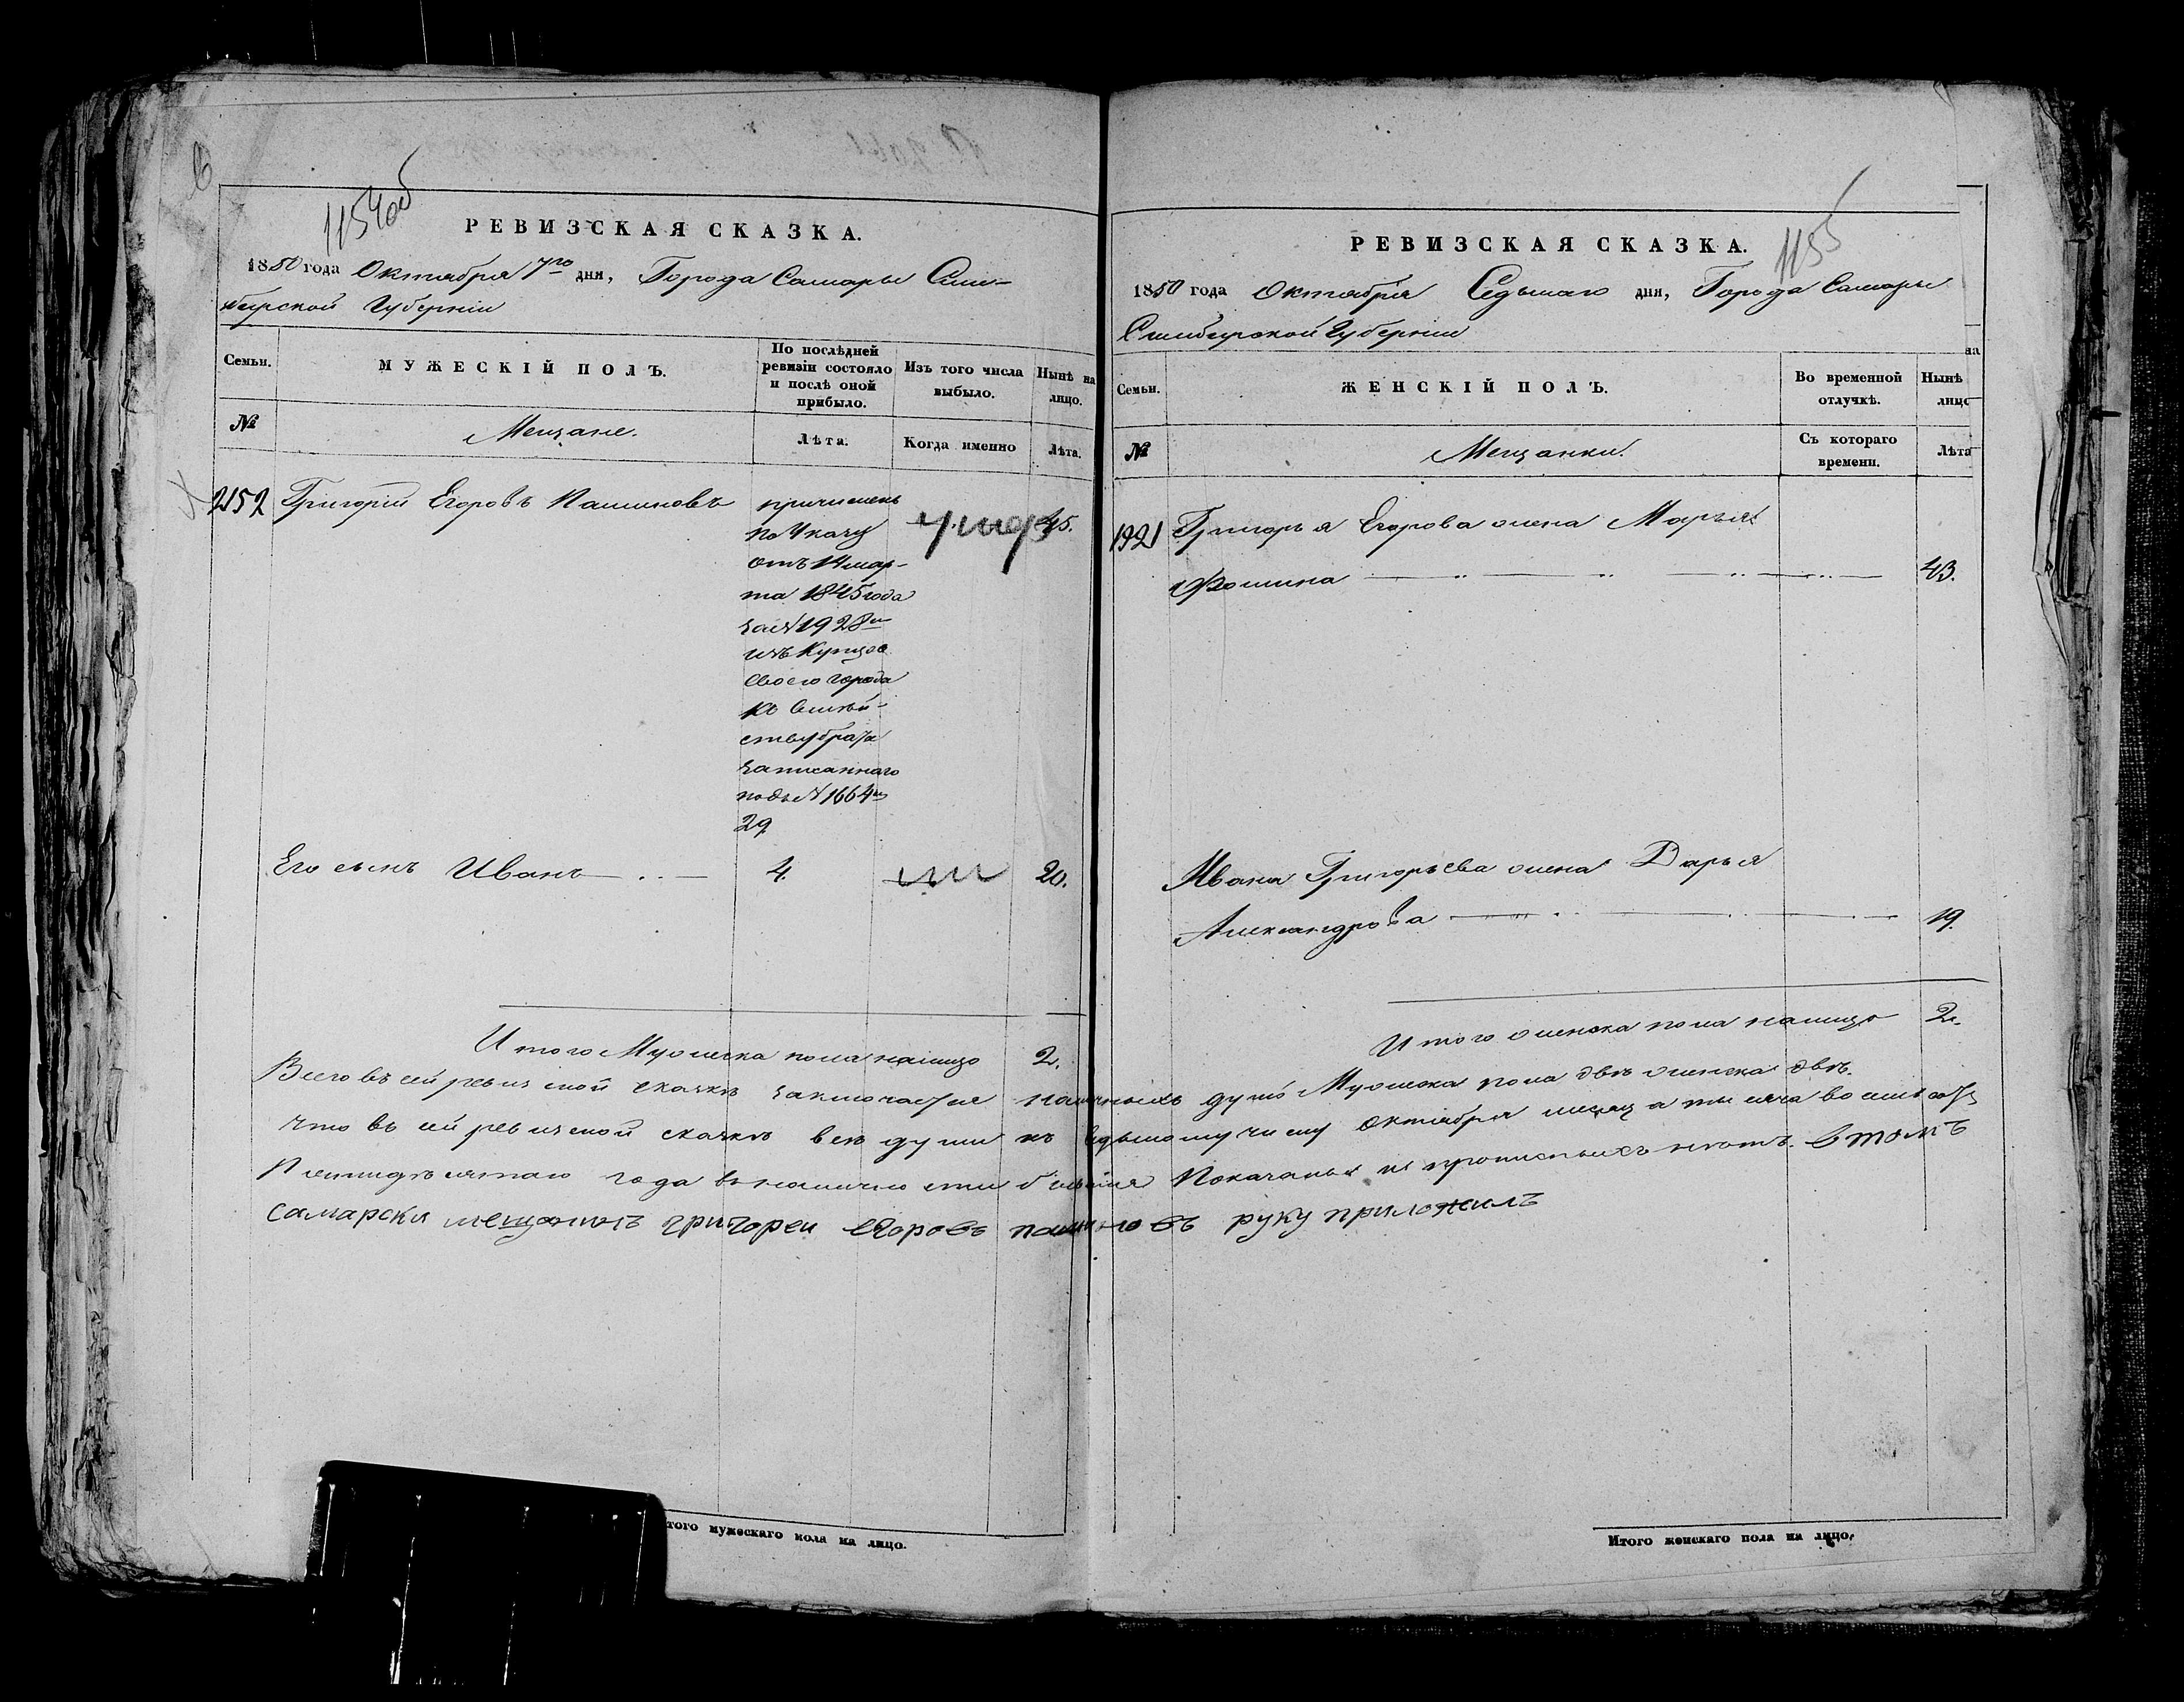 1154об
РЕВИЗСКАЯ СКАЗКА.
1850 года Октября 7го дня, Города Самары Сим-
бирской Губерніи
Семьи.
МУЖЕСКІЙ ПОЛЪ.
По послѣдней ревизіи состояло и послѣ оной прибыло.
Изъ того числа выбыло.
Нынѣ на лицо.
№
Мещане.
Лѣта.
Когда именно
Лѣта.
2152 Григорій Егоровъ Пашиновъ
причислень
по Указу
отъ 14 мар-
та 1845 года
за №1928м
изъ Купцов
своего города
къ Семѣй-
ству брата
записаннаго
подъ №1664м
29
45.
Его сынъ Иванъ 4. 20.
Итого Мужеска пола налицо 2.
1155
РЕВИЗСКАЯ СКАЗКА.
1850 года Октября Седьмаго дня, Города Самары
Симбирской Губерніи
Семьи.
ЖЕНСКІЙ ПОЛЪ.
Во временной отлучкѣ.
Нынѣ
лицо
№
Мещанки.
Съ котораго времени.
Лѣта
1921 Григорья Егорова жена Марья
Фомина 43.
Ивана Григорьева жена Дарья
Александрова 19.
Итого женска пола налицо 2.
Всего въ сей ревизской сказкѣ заключается наличныхъ душъ Мужеска пола двѣ женска двѣ.
Что въ сей ревизской сказкѣ всѣ души къ седьмому числу Октября месяца тысяча восемьсотъ
Пятидесятаго года въ наличности бывшія Показаны и прописныхъ нѣтъ. втомъ
самарски мещанинъ григореи егоровъ пашиновъ руку приложилъ
Итого мужескаго пола на лицо.
Итого женскаго пола на лицо.